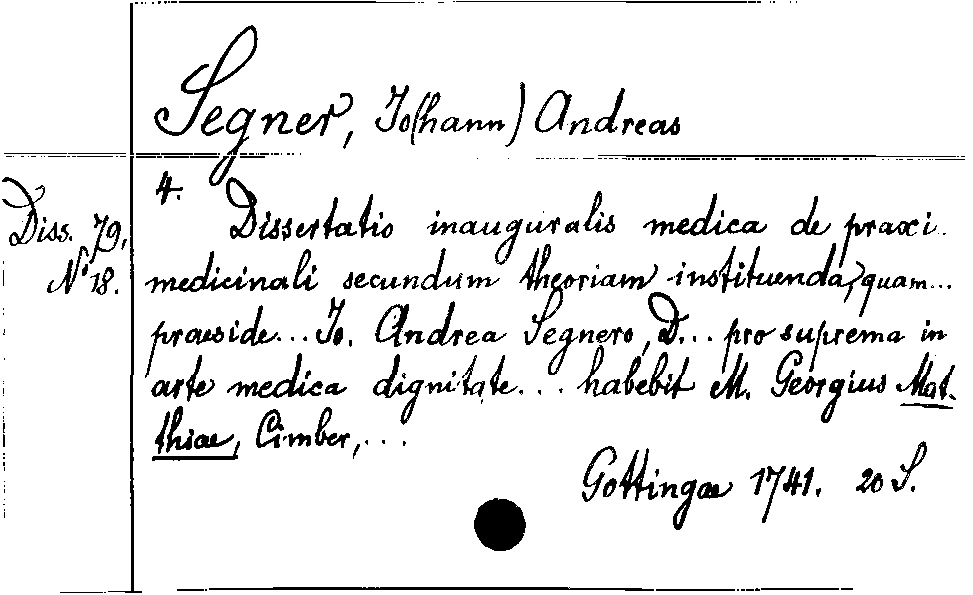 Segner, Jo(hann) Andreas
4.
Diss. 79,
No 18.
Dissertatio inauguralis medica de praxi..
medicinali secundum theoriam instituenda, quam...
praeside... Jo. Andrea Segnero, D... pro suprema in
arte medica dignitate... habebit M. Georgius Mat-
thiae, Cimber,...
Gottingae 1741. 20 S.